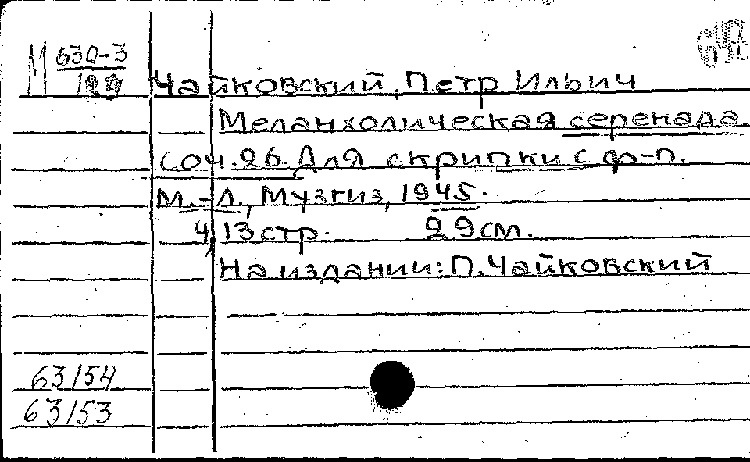 М 630-3
Чайковский, Петр Ильич
Меланхолическая серенада
соч. 26. Для скрипки с ф-п.
М.-Л., Музгиз, 1945.
4, 13 стр. 29 см.
На издании: П. Чайковский
63154
63153